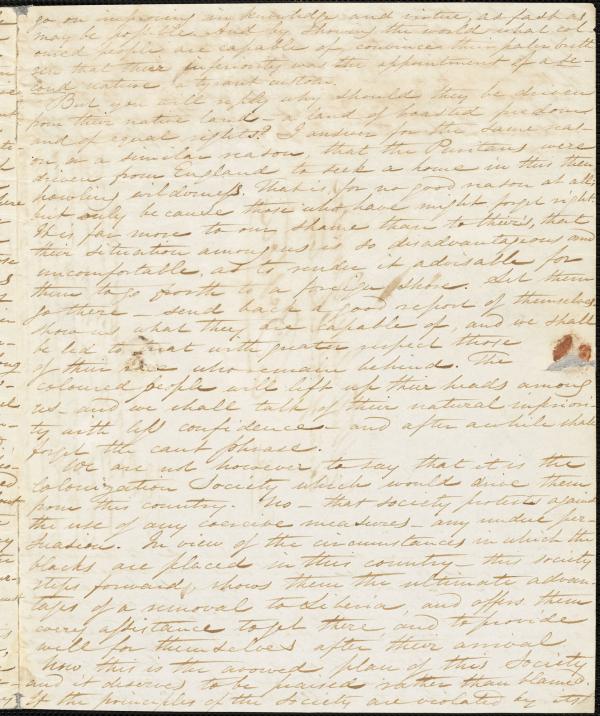 go on improving in knowledge and virtue as fast as
may be possible. And by showing the world what col-
oured people are capable of convince their paler breth-
ren that their inferiority was the appointment of a se-
cond nature a tyrant custom.
But you will reply why should they be driven
from their native land - a land of boasted freedom
and of equal rights? I answer for the same reas-
on or a similar reason, that the Puritans were
driven from England to seek a home in this then
howling wilderness. That is, for no good reason at all,
but only because those who have might forget right.
It is far more to our shame than to their's, that
their situation among us is so disadvantageous and
uncomfortable, as to render it advisable for
them to go forth to a foreign shore. Let them
go there - send back a good report of themselves
show us what they are capable of, and we shall
be led to treat with greater respect those
of their who remain behind. The
coloured people will lift up their heads among
us - and we shall talk of their natural inferiori-
ty with less confidence - and after awhile shall
forget the cant phrase.
We are not however to say that it is the
Colonization Society which would drive them
from this country. No - that society protests against
the use of any coercive measures - any undue per-
suasion. In view of the circumstances in which the
blacks are placed in this country - this society
steps forward, shows them the ultimate advan-
tages of a removal to Liberia, and offers them
every assistance to get there, and to provide
well for themselves after their arrival
Now this is the avowed plan of this Society
and it deserves to be praised rather than blamed.
If the principles of the Society are violated by its